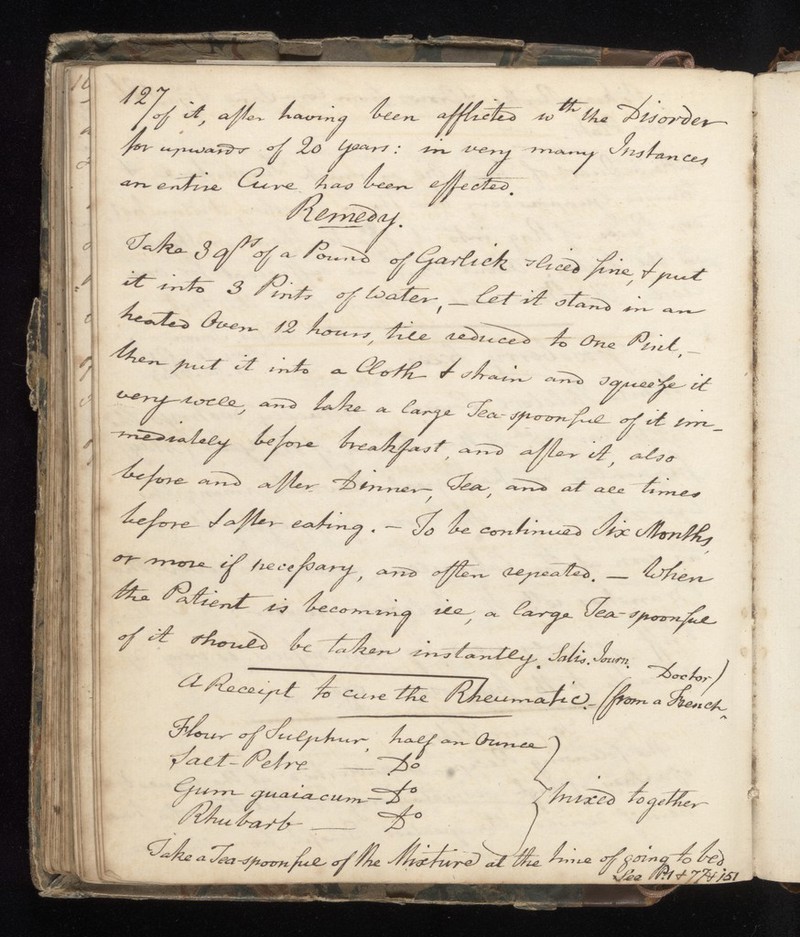 127
of it, after having been afflicted wth the Disorder
for upwards of 20 years: in very many Instances
an entire Cure has been effected.
Remedy.
Take 3 qrs of a Pound of Garlick sliced fine, & put
it into 3 Pints of Water, – let it stand in an
heated Oven 12 hours, till reduced to One Pint, –
then put it into a Cloth & strain and squeeze it
very well, and take a large Tea-spoonful of it im-
mediately before breakfast, and after it, also
before and after Dinner, Tea, and at all times
before & after eating. – To be continued Six Months,
or more if necessary, and often repeated. – When
the Patient is becoming ill, a large Tea-spoonful
of it should be taken instantly. Salis. Journ.
A Receipt to cure the Rheumatic. – (from a French Doctor)
Flour of Sulphur, half an Ounce
Salt-Petre — Do
Gum guaiacum – Do
Rhubarb — Do
mixed together
Take a Tea-spoonful of the Mixture at the time of going to bed
See P. 1 & 77 & 151